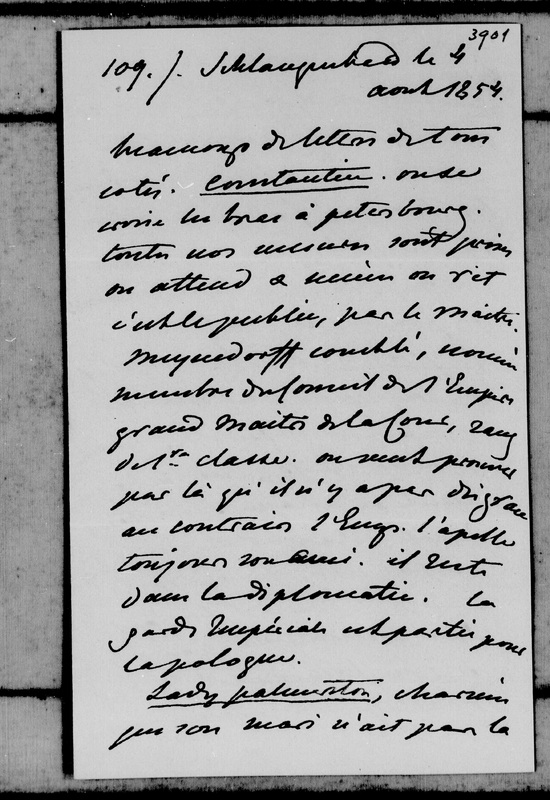 3901
109. /. Schlangenbad le 4
aout 1854.
beaucoup de lettres de tous
cotés. Constantin. on se
croise les bras à petersbourg.
toutes nos mesures sont prises
on attend & même on rit
c'est le public, pas le maitre.
Meyendorff comblé, nommé
membre du Conseil de l'Empire
grand Maitre de la Cour, rang
de 1re classe. on veut prouver
par là qu'il n'y a pas disgrace
au contraire l'Emp. l'apelle
toujours son ami. il reste
dans la diplomatie. la
garde Impériale est partie pour
la pologne.
Lady palmerston, chagrin
que son mari n'ait pas la